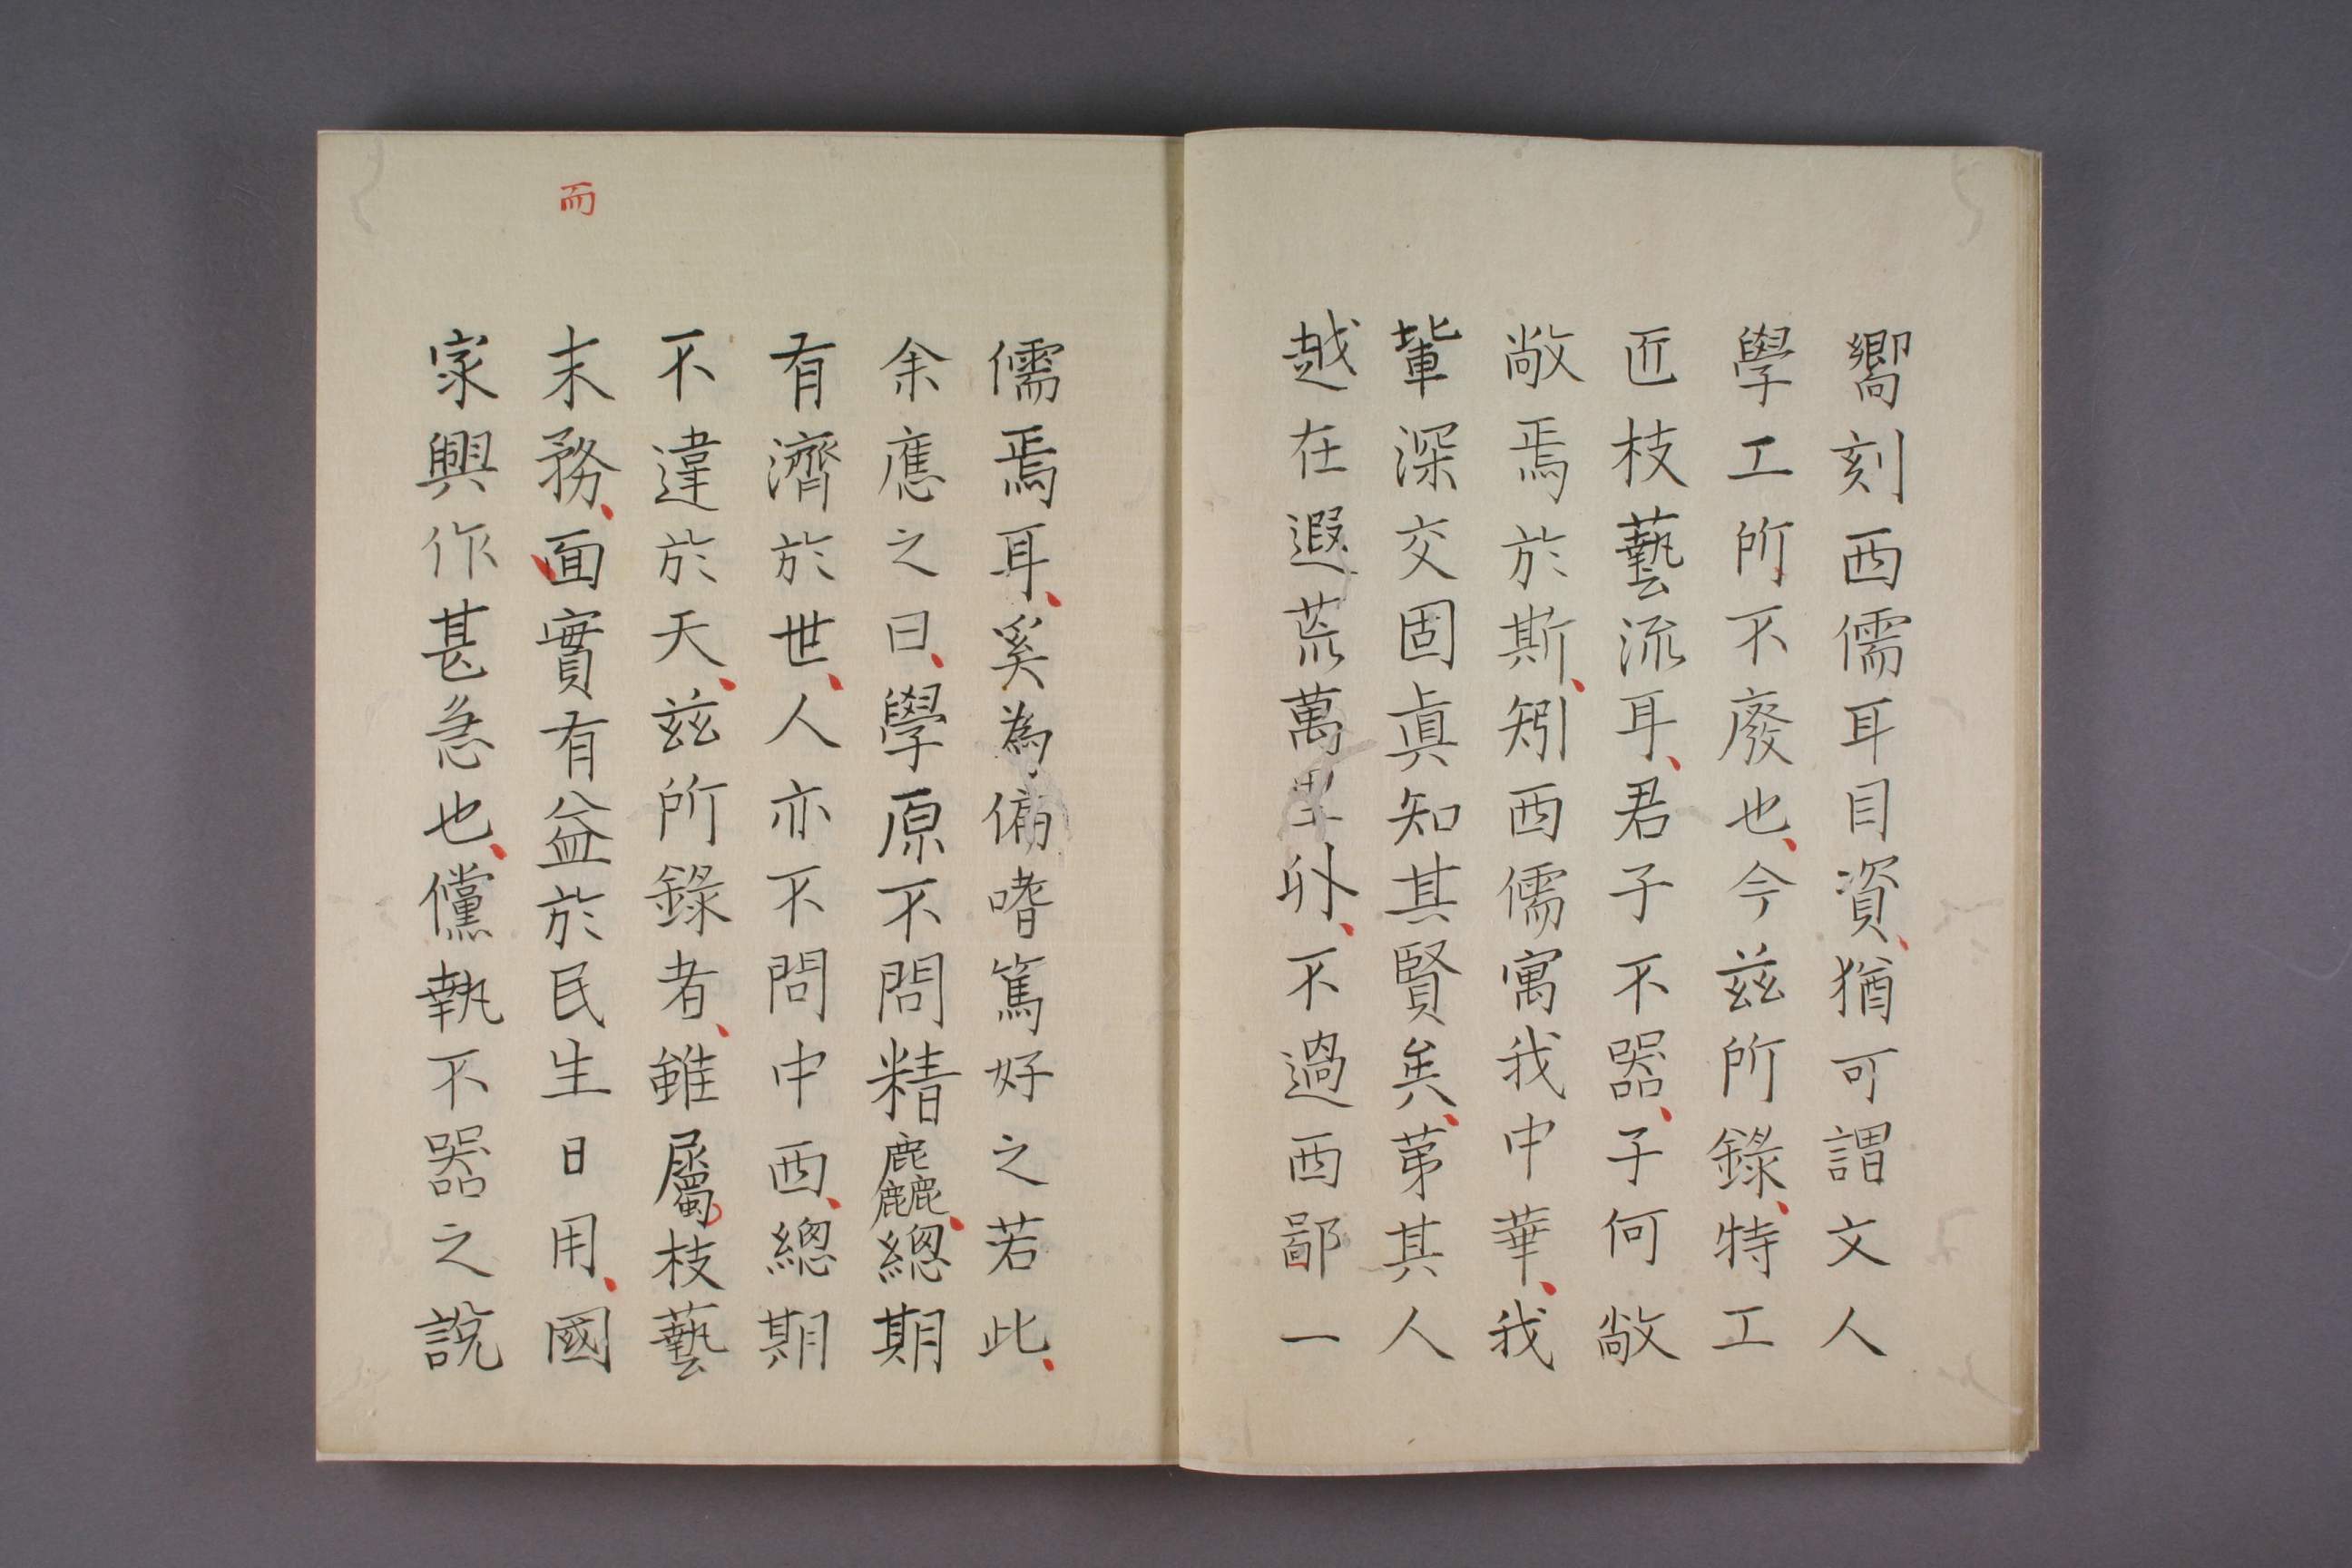 嚮刻西儒耳目資、猶可謂文人
學工所不廢也、今茲所錄、特工
匠枝藝流耳、君子不器、子何敞
敞焉於斯、矧西儒寓我中華、我
輩深交固眞知其賢矣、苐其人
越在遐荒萬里外、不過西鄙一
儒焉耳、奚為偏嗜篤好之若此、
余應之曰、學原不問精麤、總期
有濟於世、人亦不問中西、總期
不違於天、茲所錄者、雖屬枝藝
末務、面實有益於民生日用、國
家興作甚急也、儻執不器之說
而